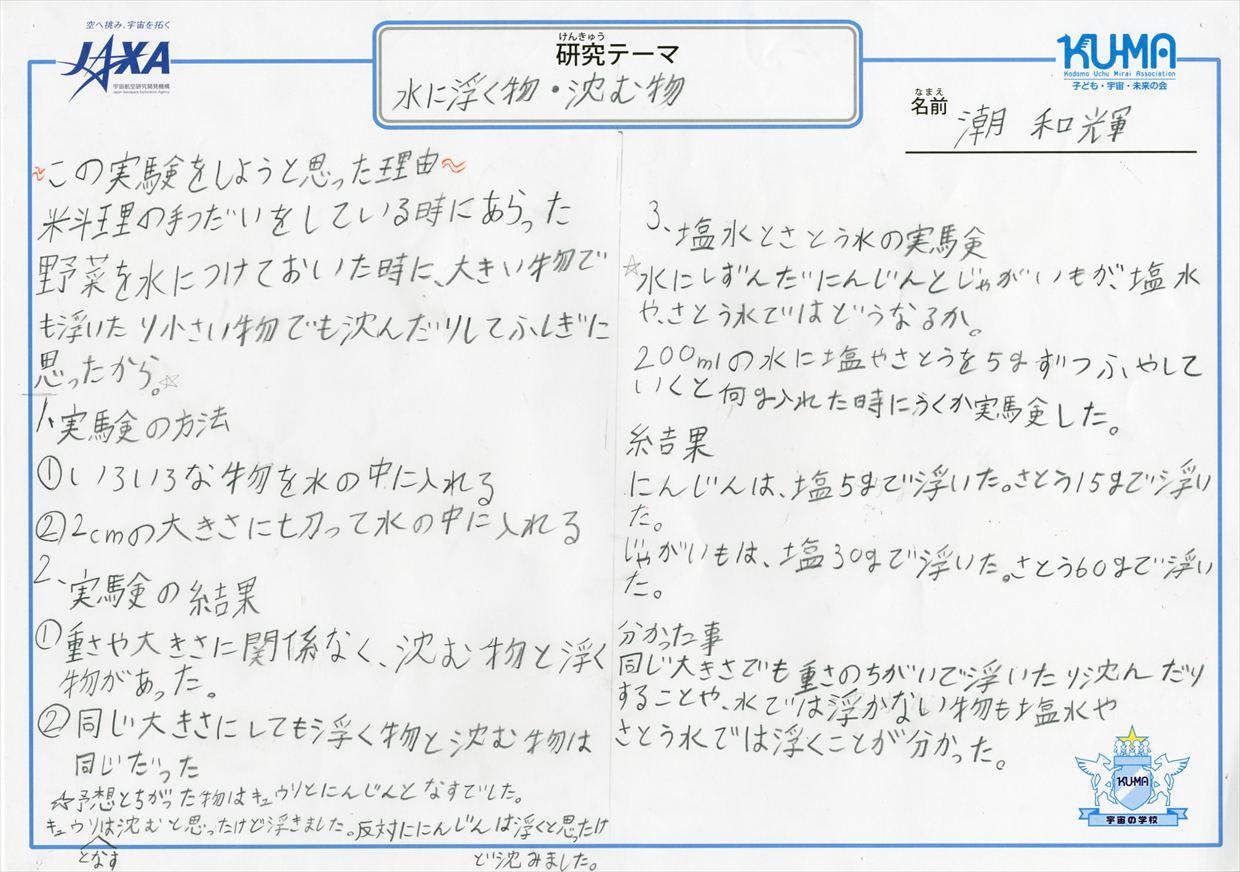 空へ挑み、宇宙を拓く
JAXA
宇宙航空研究開発機構
Japan Aerospace Exploration Agency
けんきゅう
研究テーマ
水に浮く物・沈む物
KU-MA
Kodomo Uchu Mirai Association
子ども・宇宙・未来の会
なまえ
名前 潮 和輝
~この実験をしようと思った理由~
料理の手つだいをしている時にあらった
野菜を水につけておいた時に、大きい物で
も浮いたり小さい物でも沈んだりしてふしぎに
思ったから。☆
1、実験の方法
①いろいろな物を水の中に入れる
②2cmの大きさに切って水の中に入れる
2、実験の結果
①重さや大きさに関係なく、沈む物と浮く
物があった。
②同じ大きさにしても浮く物と沈む物は
同じだった
☆予想とちがった物はキュウリとにんじんとなすでした。
キュウリは沈むと思ったけど浮きました。反対ににんじんは浮くと思ったけ
となす
ど沈みました。
3、塩水とさとう水の実験
☆水にしずんだにんじんとじゃがいもが、塩水
や、さとう水ではどうなるか。
200mlの水に塩やさとうを5gずつふやして
いくと何g入れた時にうくか実験した。
結果
にんじんは、塩5gで浮いた。さとう15gで浮い
た。
じゃがいもは、塩30gで浮いた。さとう60gで浮い
た。
分かった事
同じ大きさでも重さのちがいで浮いたり沈んだり
することや、水では浮かない物も塩水や
さとう水では浮くことが分かった。
KU-MA
宇宙の学校